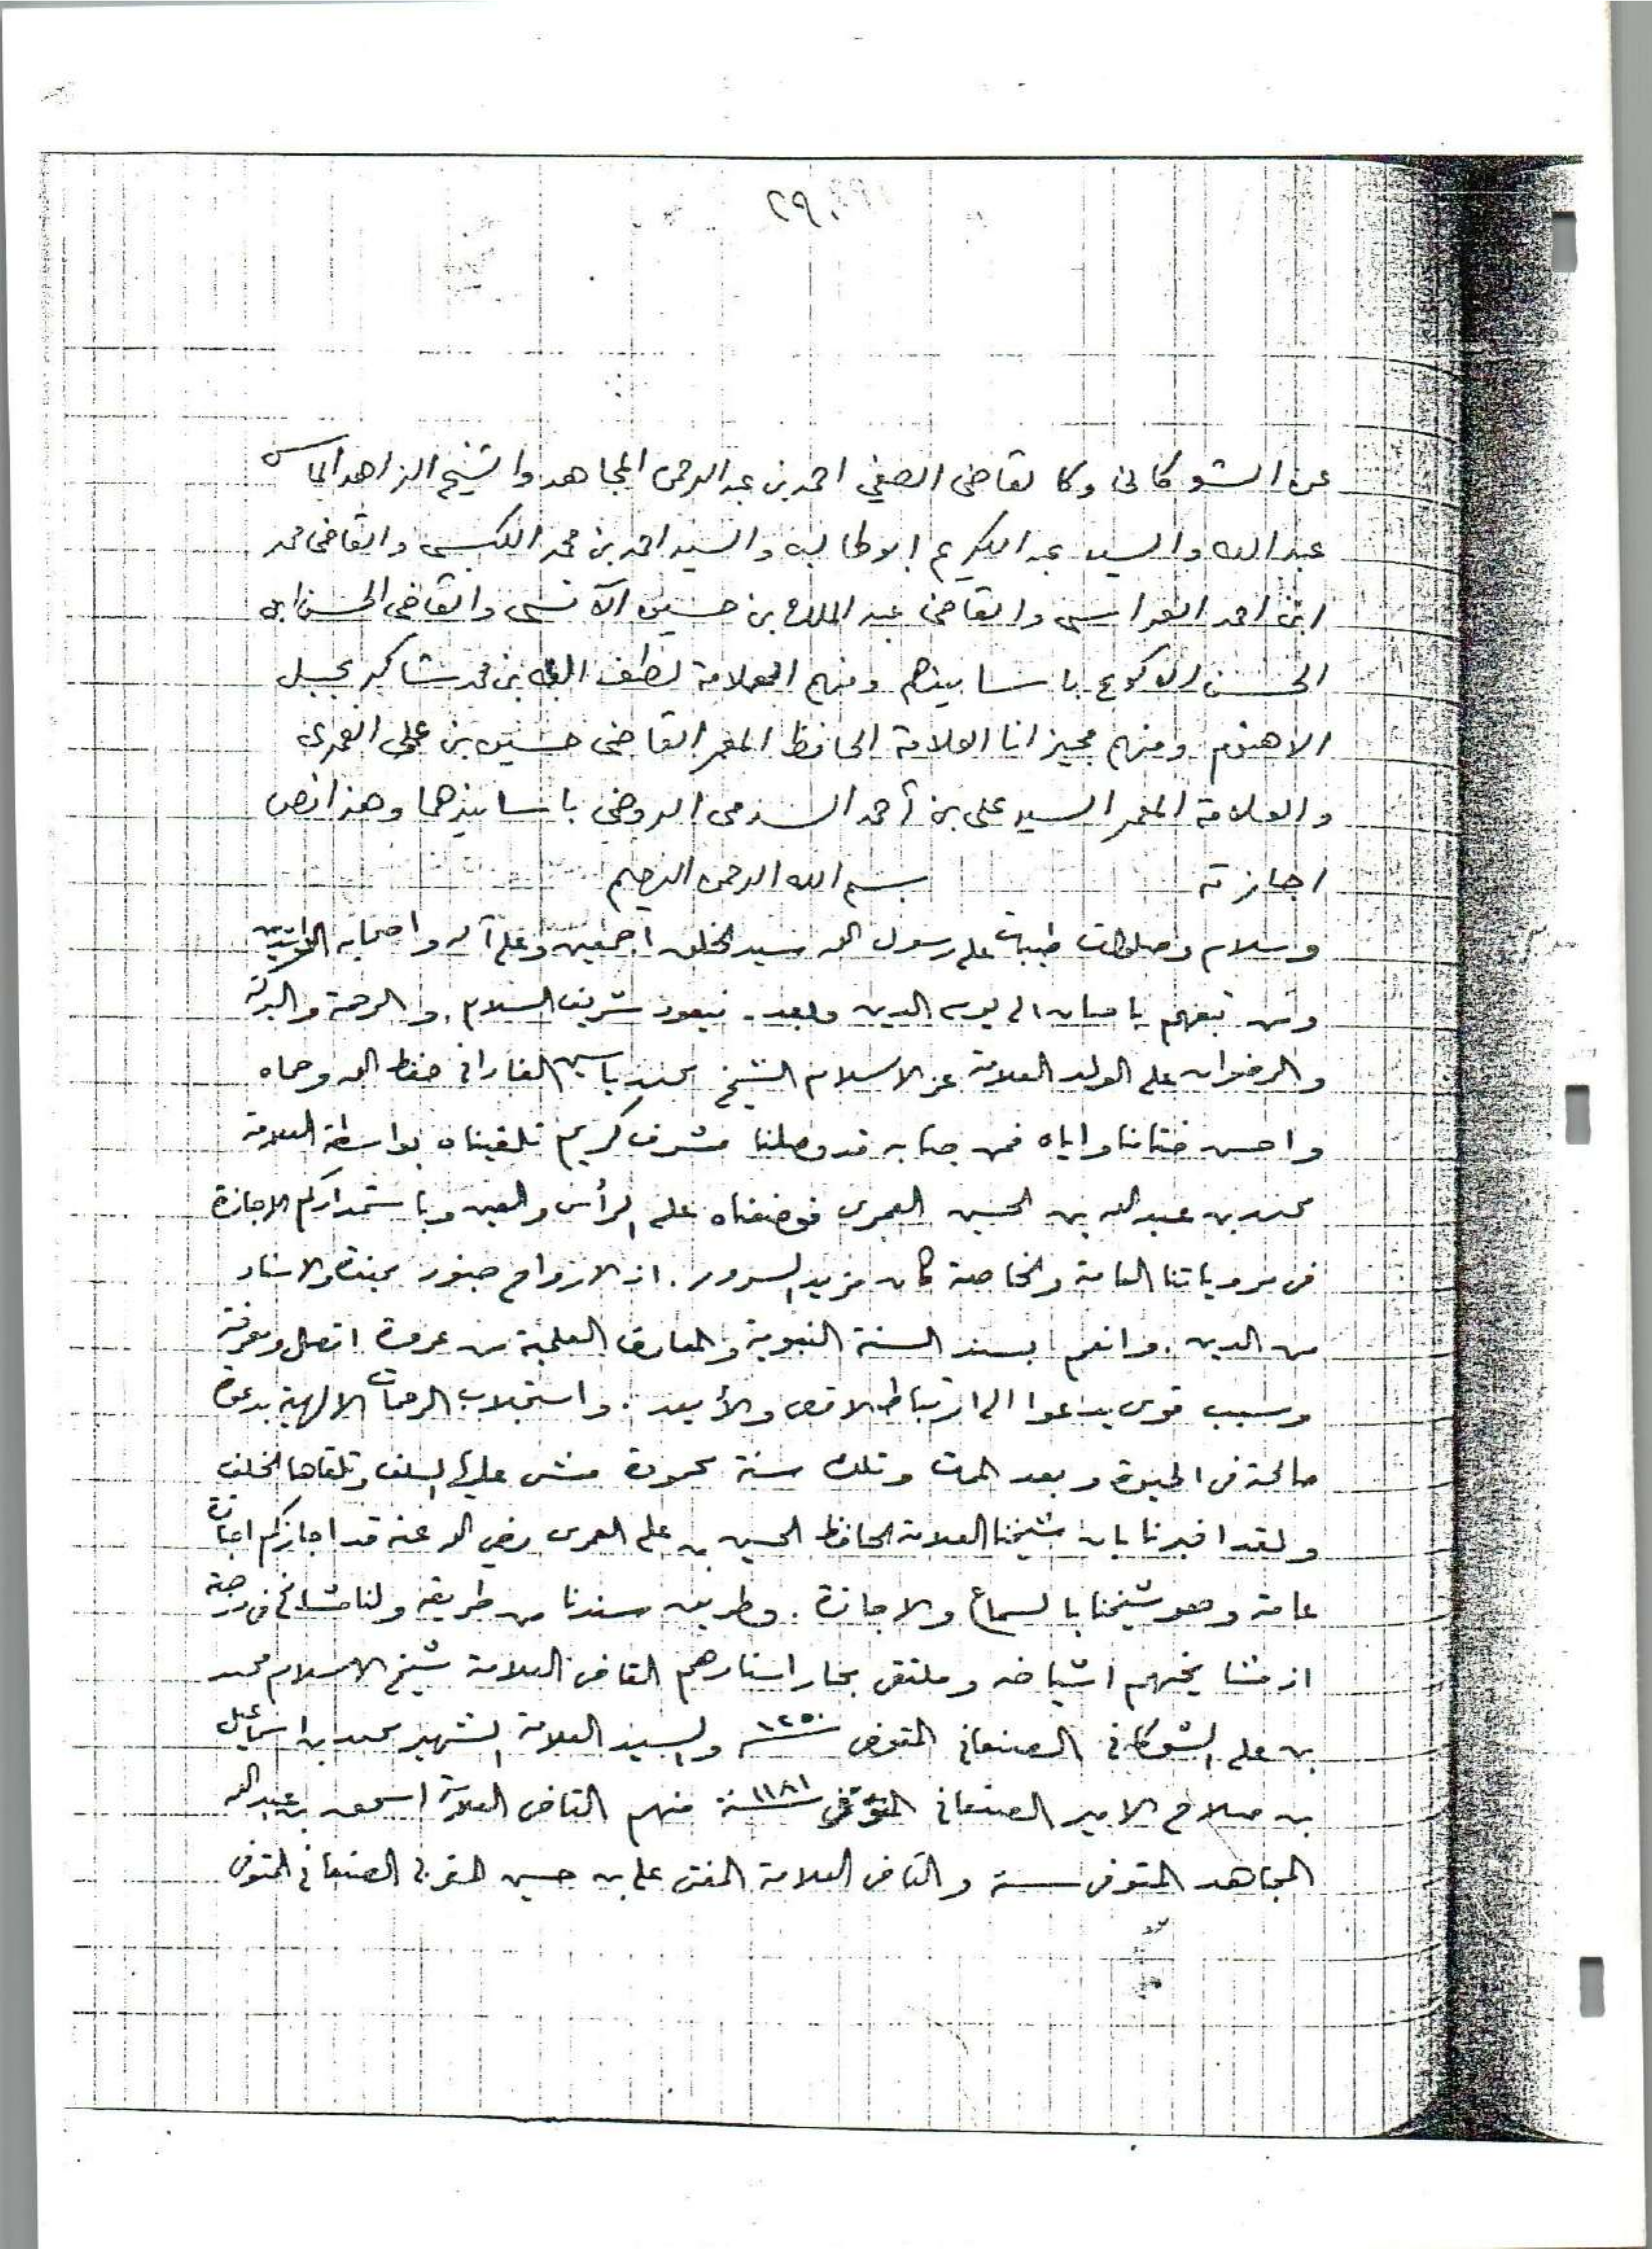 ٢٩٠
عن الشوكاني وكالقاضي الصفي احمد بن عبد الرحمن المجاهد والشيخ الزاهد الماس
عبد الله والسيد عبد الكريم ابو طالب والسيد احمد بن محمد الكبسي والقاضي محمد
ابن احمد العراسي والقاضي عبد الملك بن حسين الآنسي والقاضي الحسن ابن
الحسن الاكوع باسانيدهم ومنهم العلامة لطف الله بن محمد شاكر بجبل
الاهنوم ومنهم مجيزانا العلامة الحافظ المعمر القاضي حسين بن علي العمري
والعلامة المعمر السيد علي بن أحمد السدمي الروضي باسانيدهما وهذا نص
اجازته بسم الله الرحمن الرحيم
وسلام وصلوات طيبات على رسول الله سيد الخلق اجمعين وعلى آله واصحابه الراشدين
ومن تبعهم باحسان الى يوم الدين وبعد. فيعود شريف السلام. والرحمة والبركة
والرضوان على الولد العلامة عز الاسلام الشيخ محمد ياسين الفاداني حفظه الله وحماه
واحسن ختامنا واياه فمن جنابه قد وصلنا مشرف كريم تلقيناه بواسطة العلامة
محمد بن عبد الله بن الحسين العمري فوضعناه على الرأس والعين وباستمدادكم الاجازة
في مروياتنا العامة والخاصة كان مزيد السرور. اذ الارواح جنود مجندة والاسناد
من الدين. وانعم بسند السنة النبوية والمعارف العلمية من عروة اتصل ومعرفة
وسبب قوي يدعوا الى ارتباط الاقصى والأبعد. واستجلاب الرحمات الالهية بدعوة
صالحة في الحيوة وبعد الموت وتلك سنة محمودة مشى عليها السلف وتلقاها الخلف
ولقد اخبرنا بان شيخنا العلامة الحافظ الحسين بن علي العمري رضي الله عنه قد اجازكم اجازة
عامة وهو شيخنا بالسماع والاجازة. وطريق سندنا من طريقه ولنا مشائخ في درجته
اذ مشايخهم اشياخه وملتقى بحار اسنادهم القاضي العلامة شيخ الاسلام محمد
بن علي الشوكاني الصنعاني المتوفى سنة ١٢٥٠ والسيد العلامة الشهير محمد بن اسماعيل
بن صلاح الامير الصنعاني المتوفى سنة ١١٨١ منهم القاضي العلامة اسحق بن عبد الله
المجاهد المتوفى سنة والقاضي العلامة المفتي علي بن حسين المغربي الصنعاني المتوفى